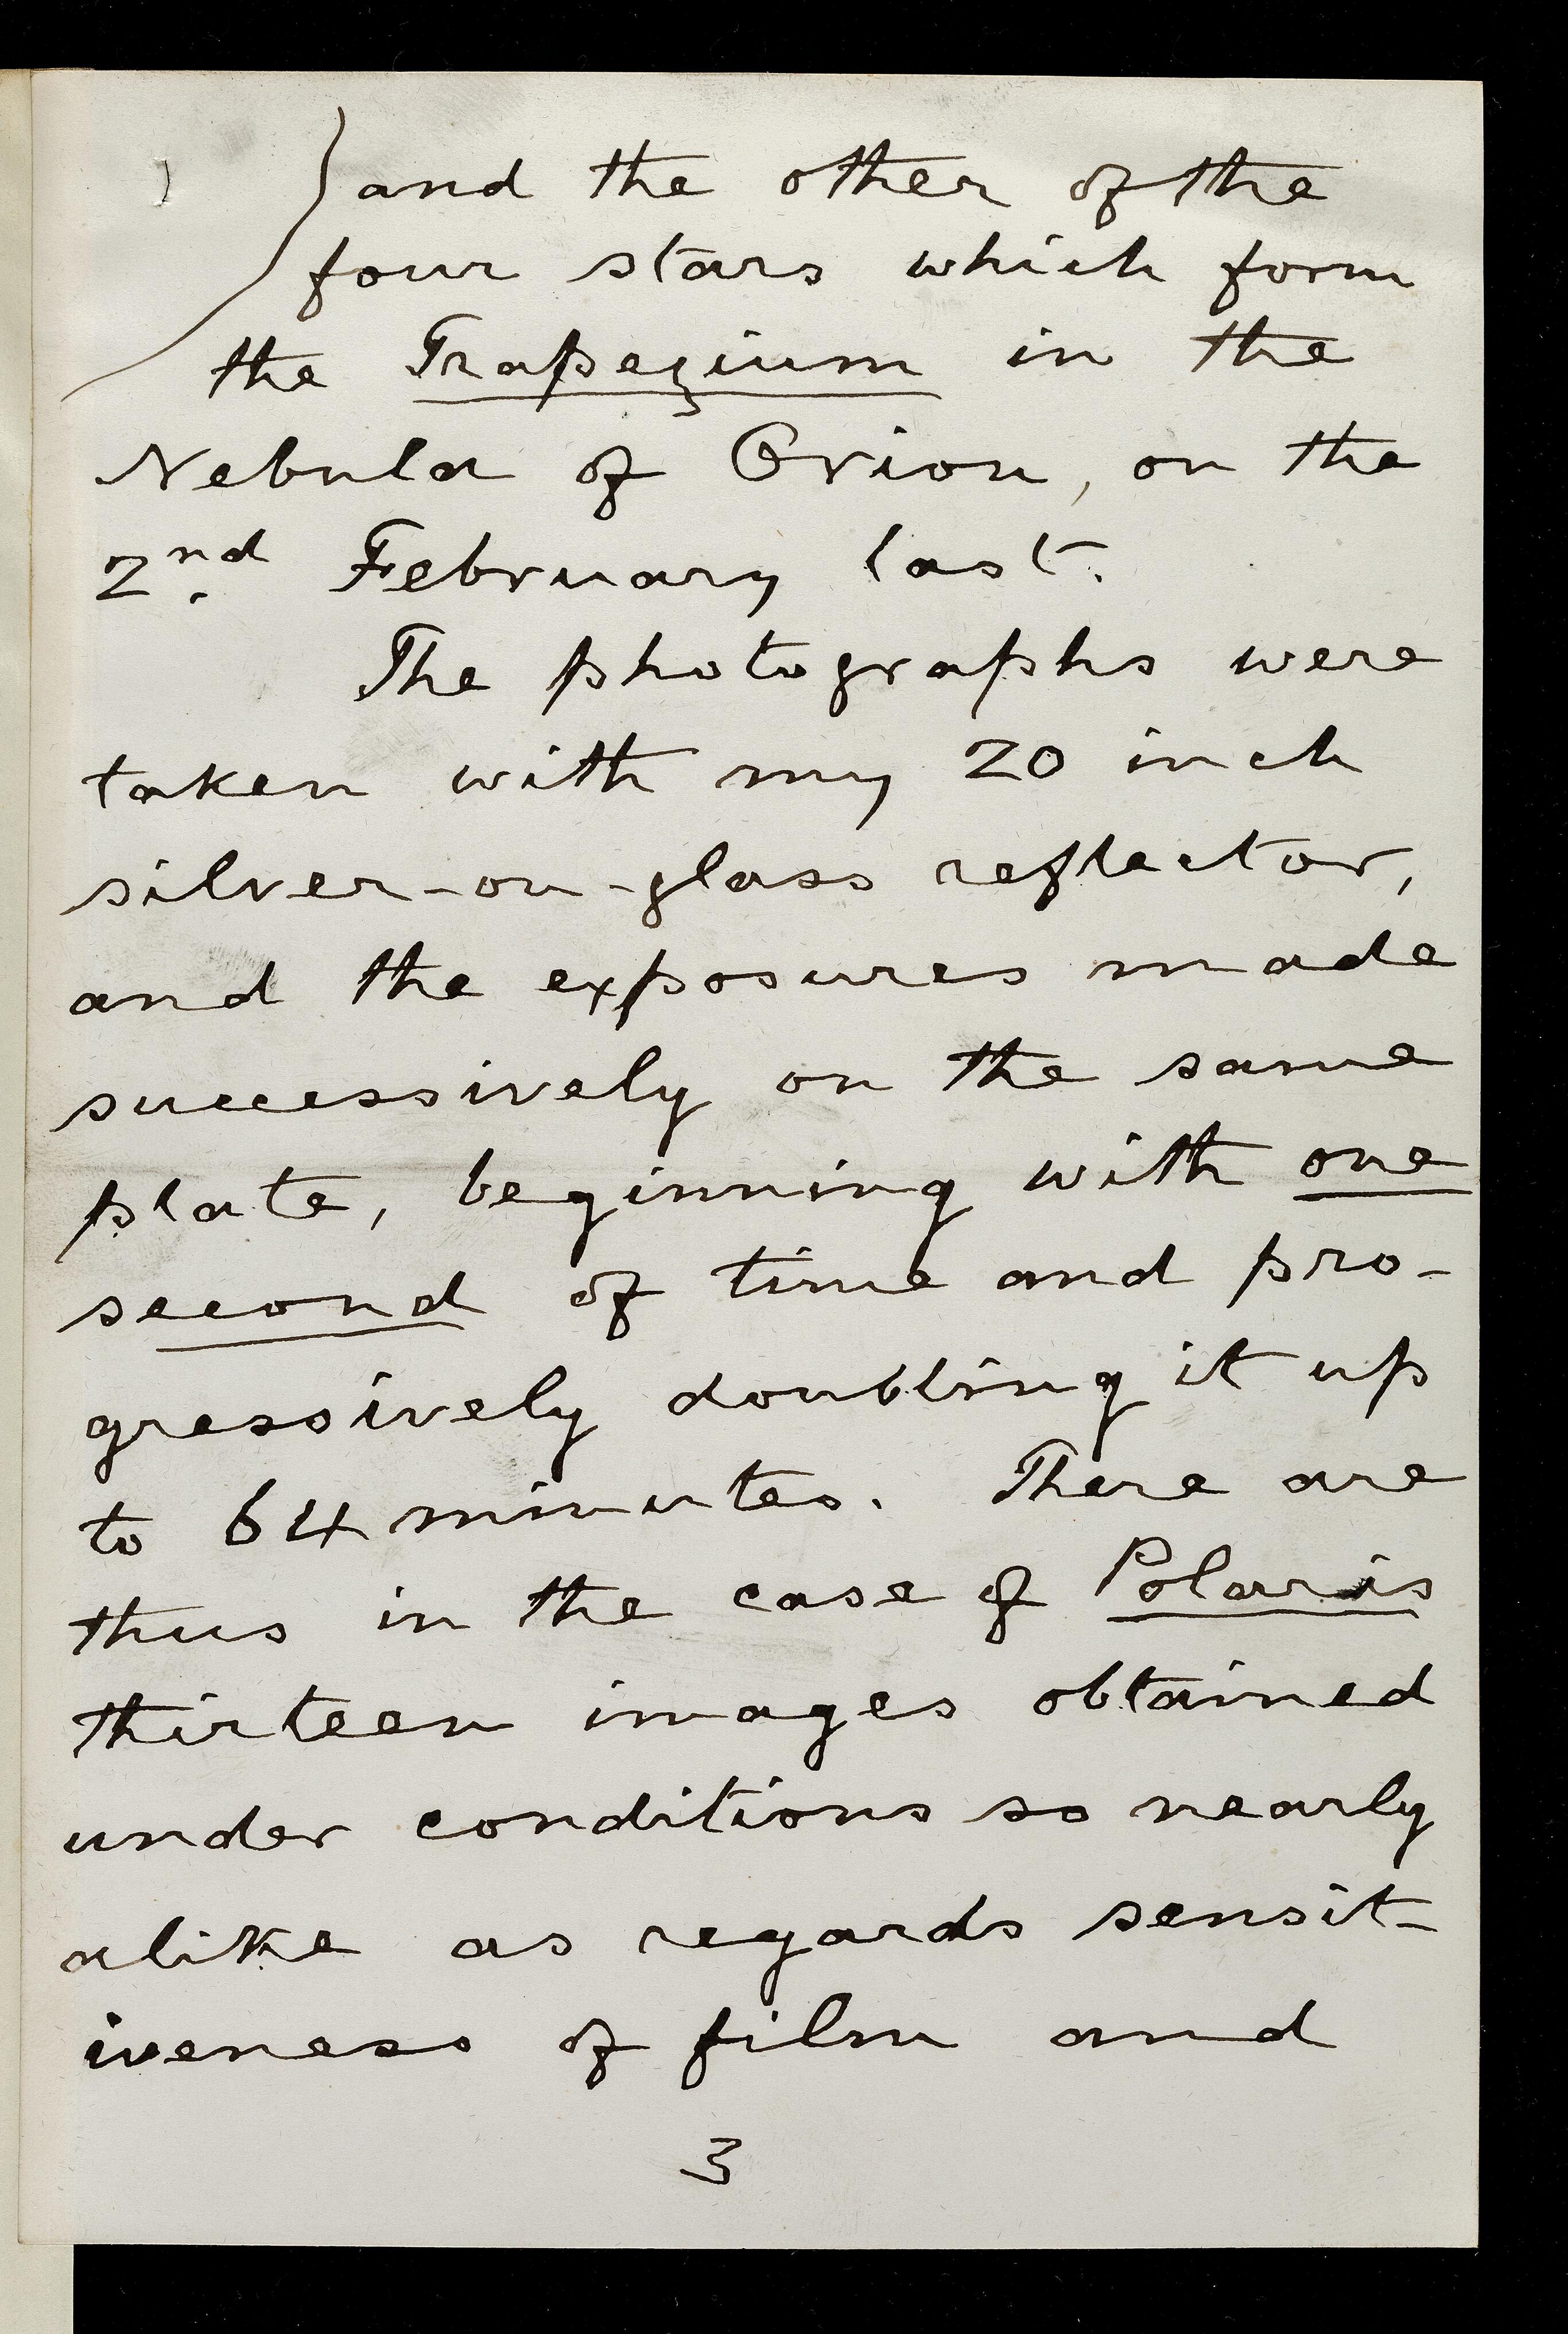 and the other of the
four stars which form
the Trapezium in the
Nebula of Orion, on the
2nd. February last.
The photographs were
taken with my 20 inch
silver-on-glass reflector,
and the exposures made
successively on the same
plate, beginning with one
second of time and pro-
gressively doubling it up
to 64 minutes. There are
thus in the case of Polaris
thirteen images obtained
under conditions so nearly
alike as regards sensit-
iveness of film and
3